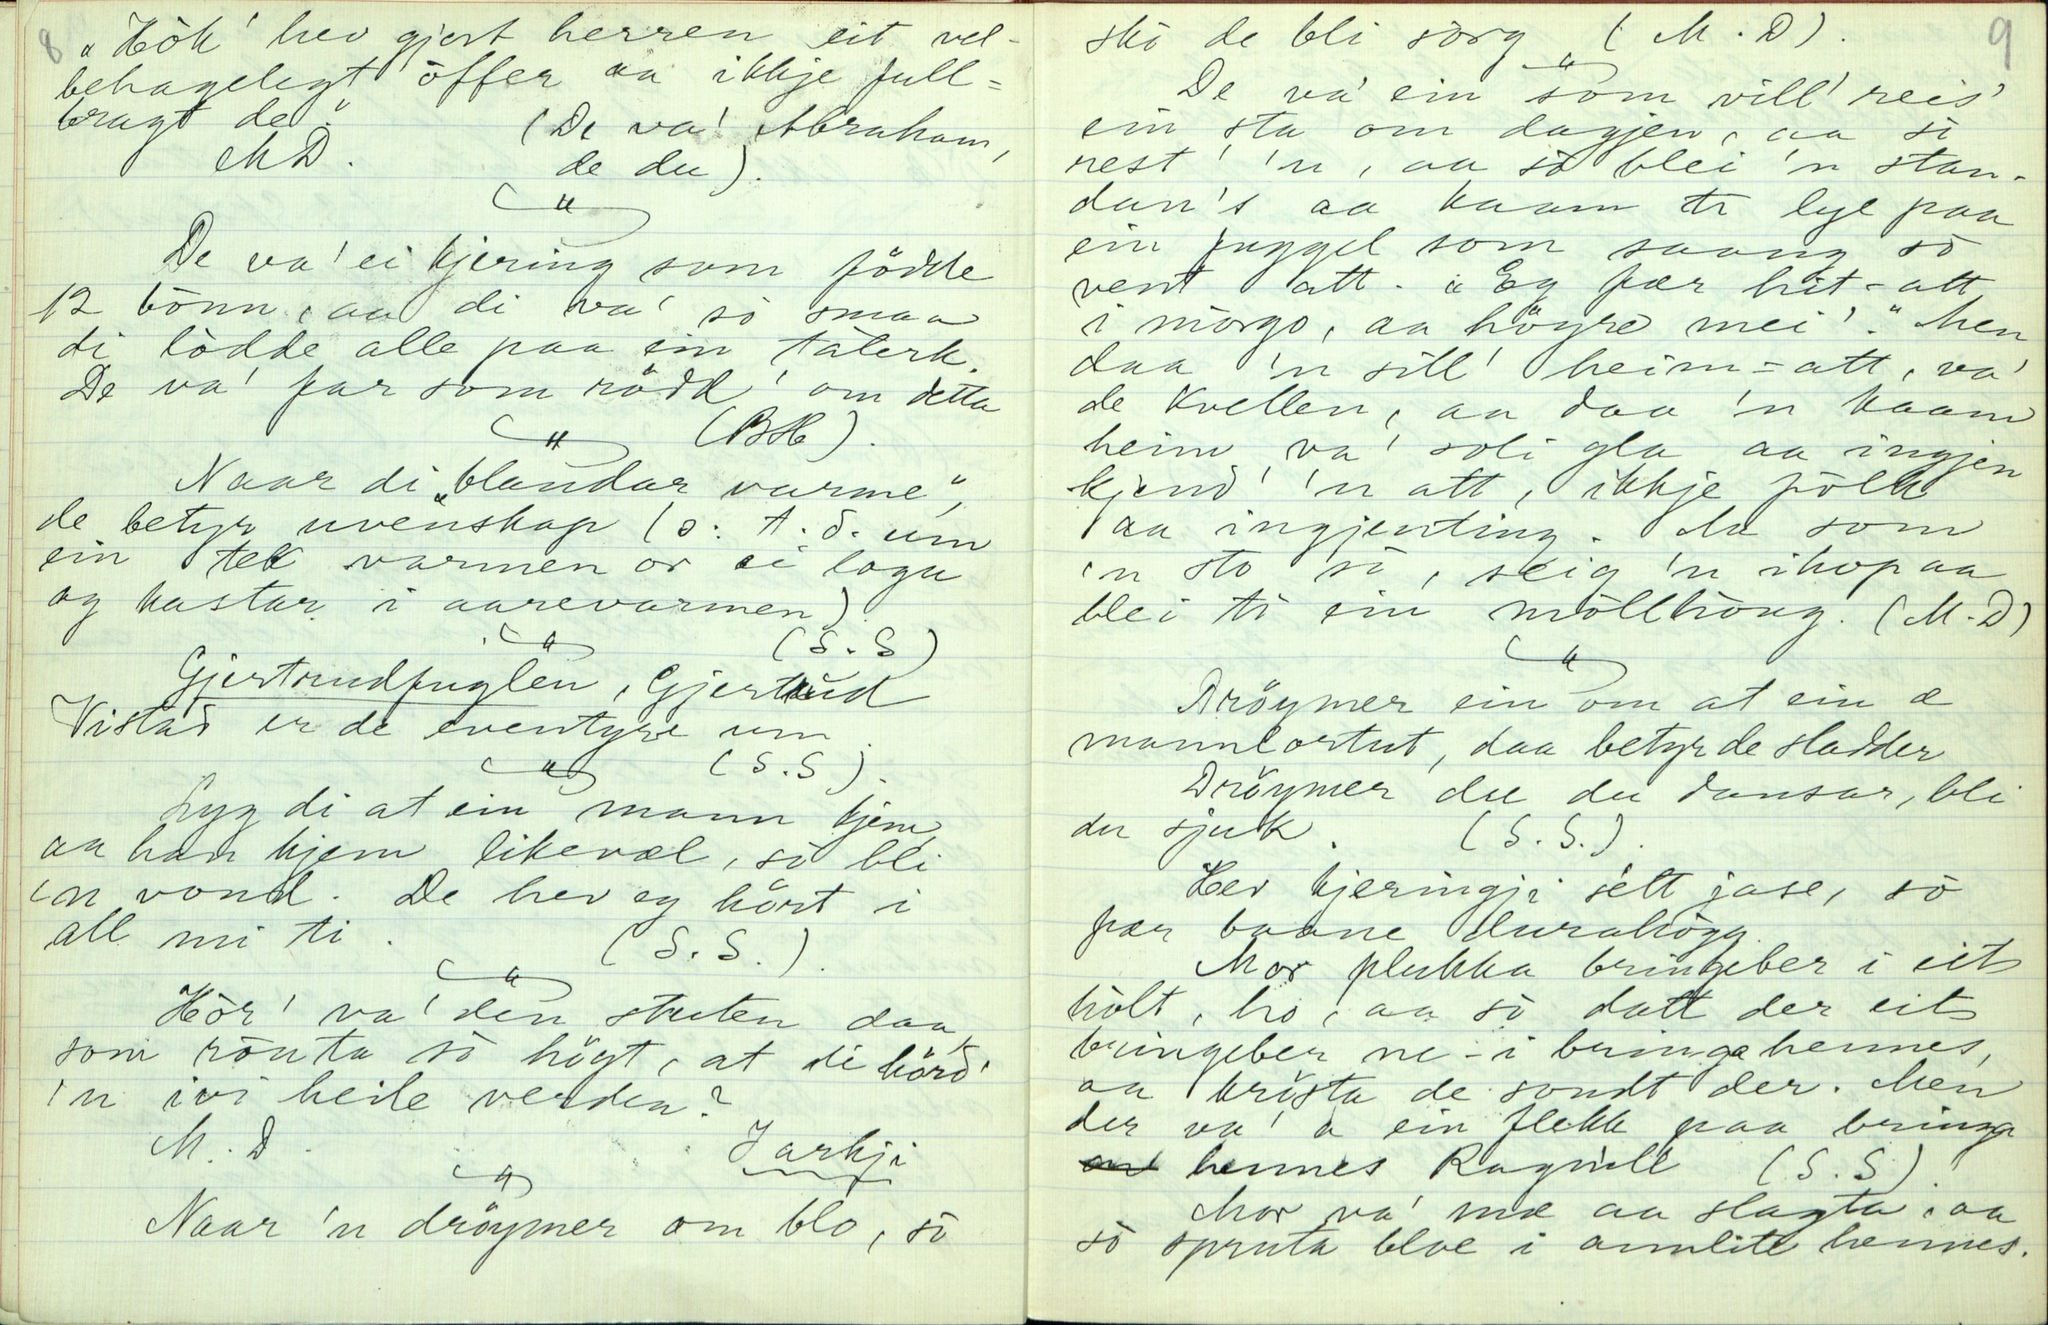 8
"Hök' hev gjort herren eit vel-
behagelegt öffer aa ikkje full=
bragt de".
(De va' Abraham,
M D.
de du).
"
De va' ei kjering som födde
12 bönn, aa di va' so smaa
di lödde alle paa ein talerk.
De va' far som rödd' om detta
" (BH).
Naar di "blandar varme",
de betyr uvenskap (ɔ: t. d. um
ein tek varmen or ei loga
og kastar i aarevarmen)
" (S. S)
Gjertrudfuglen, Gjertrud
Vistad er de eventyre um.
" (S. S).
Lyg di at ein mann kjem,
aa han kjem likevæl, so bli
'n vond. De hev eg hört i
all mi ti. (S. S.).
"
Hör' va' den stuten daa,
som rönta so högt, at di hörd'
'n ivi heile verden?
M. D. Jarkji
"
Naar 'n dröymer om blo, so
9
sko de bli sorg (M. D).
"
De va' ein som vill' reis'
ein sta om dagjen, aa so
rest' 'n, aa so blei 'n stan-
dan's aa kaam ti lye paa
ein fuggel som saang so
vent att. "Eg fær hit-att
i morgo, aa höyre mei'." Men
daa 'n sill' heim=att, va'
de kvellen, aa daa 'n kaam
heim va' soli gla aa ingjen
kjend' 'n att, ikkje folk
aa ingjenting. Me som
'n sto so, seig 'n ihop aa
blei ti ein mollhoug. (M. D)
"
Dröymer ein om at ein æ
mannlortut, daa betyr de sladder
Dröymer du du dansar, bli
du sjuk. (S. S.).
Hev kjeringji sett jase, so
fær baane skarahögg.
Mor plukka bringeber i eit
holt, ho, aa so datt der eit
bringeber ne-i bringa hennes,
aa krista de sondt der. Men
der va' a ein flekk paa bringa
hennes Ragnill (S. S).
Mor va' mæ aa slagta, aa
so spruta bloe i annlite hennes.